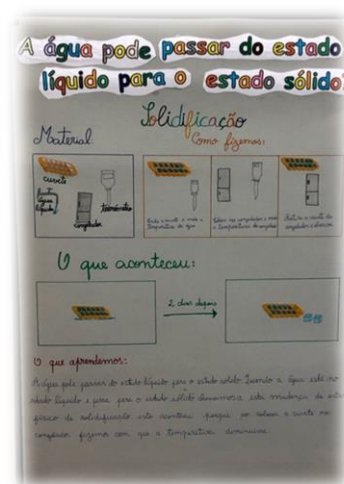 A água pode passar do estado
líquido para o estado sólido?
Solidificação
Material:
Como fizemos:
cuvete
água líquida
congelador
termómetro
O que aconteceu:
2 dias depois
O que aprendemos:
A água pode passar do estado líquido para o estado sólido. Quando a água está no
estado líquido e passa para o estado sólido chamamos a esta mudança de estado
físico de solidificação isto acontece porque ao colocar a cuvete no
congelador fizemos com que a temperatura diminuísse.